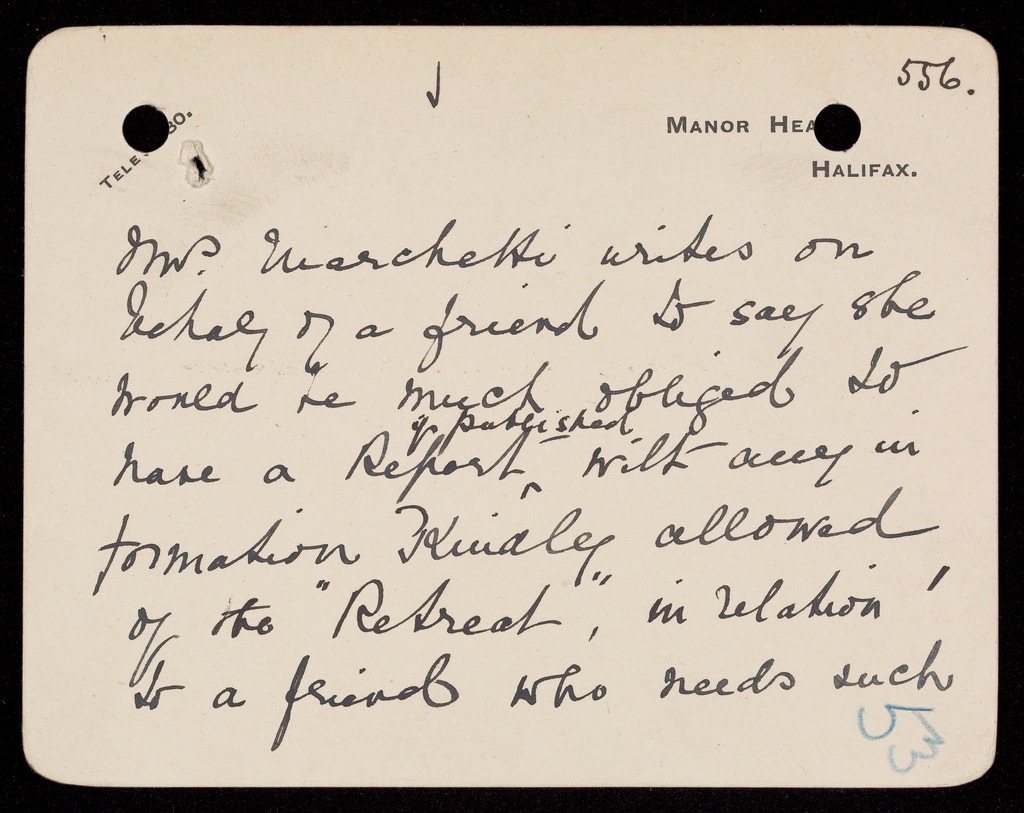 556.
TELE 80.
MANOR HEA
HALIFAX.
Mrs. Marchetti writes on
behalf of a friend to say she
would be much obliged to
if published
have a Report ^ with any in
formation Kindly allowed
of the "Retreat", in relation
to a friend who needs such
53